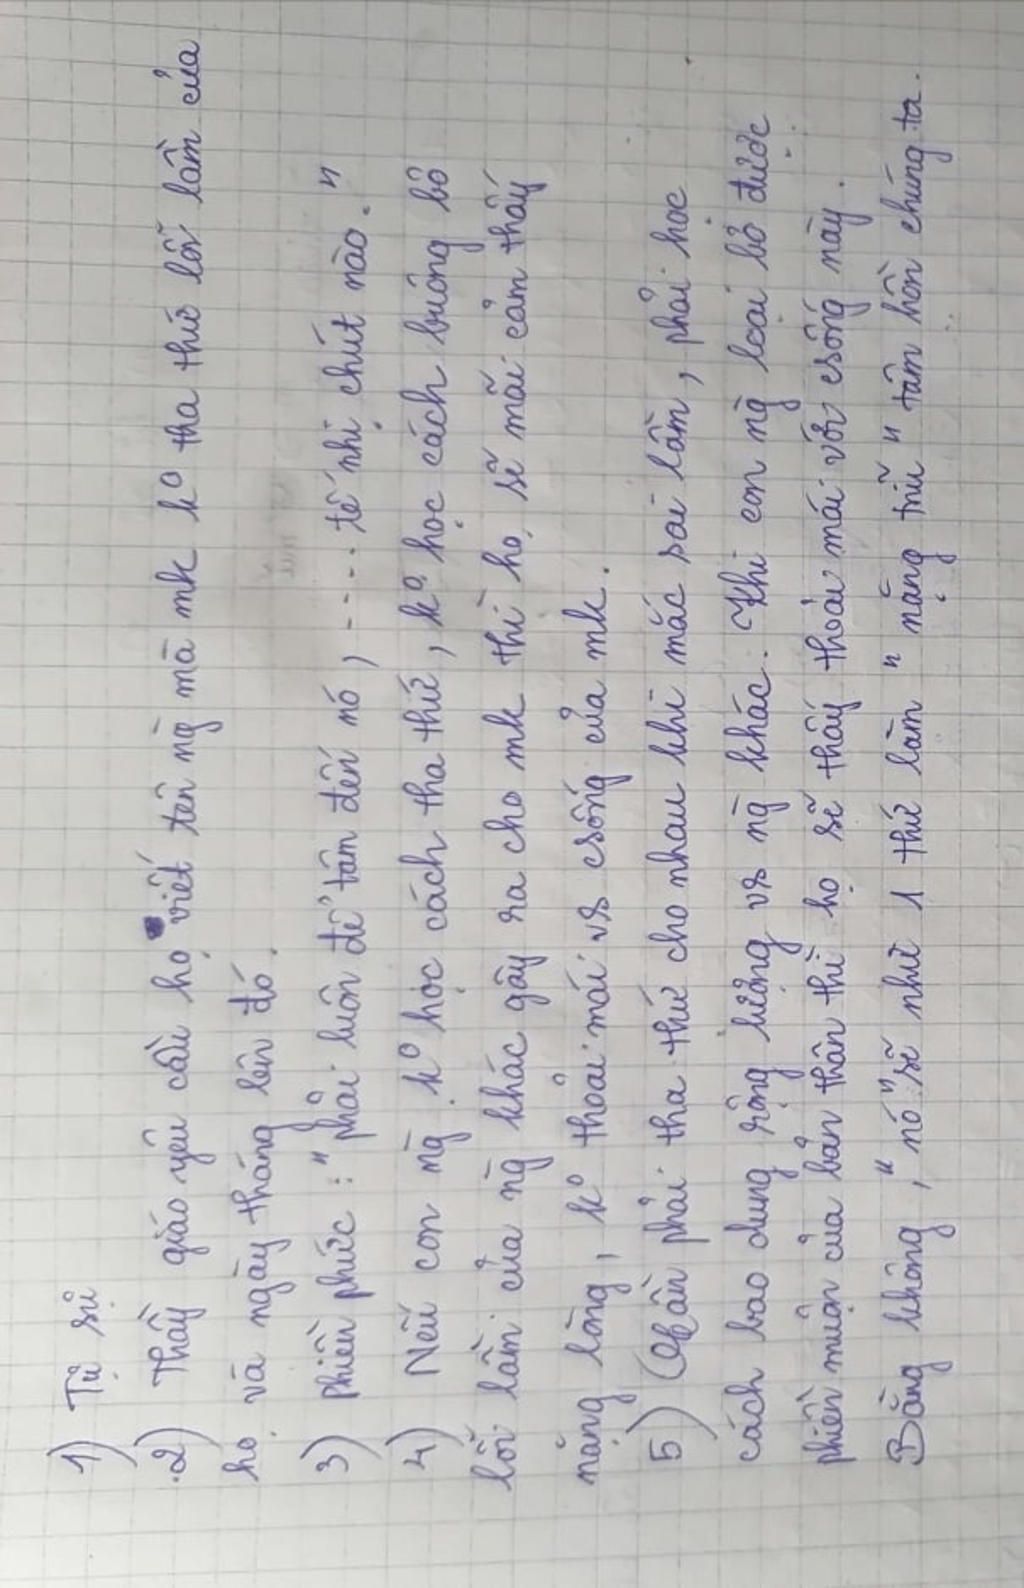 1) Tự sự
2) Thầy giáo yêu cầu họ viết tên ng̀ mà mk k° tha thứ lỗi lầm của
họ và ngày tháng lên đó.
3) Phiền phức : " phải luôn để tâm đến nó , ---- tế nhị chút nào . "
4) Nếu con ng̀ k° học cách tha thứ , k° học cách buông bỏ
lỗi lầm của ng̀ khác gây ra cho mk thì họ sẽ mãi cảm thấy
nặng lòng , k° thoải mái vs csống của mk .
5) Cần phải tha thứ cho nhau khi mắc sai lầm , phải học
cách bao dung rộng lượng vs ng̀ khác . Khi con ng̀ loại bỏ được
phiền muộn của bản thân thì họ sẽ thấy thoải mái với csống này .
Bằng không , " nó " sẽ như 1 thứ làm " nặng trĩu " tâm hồn chúng ta .